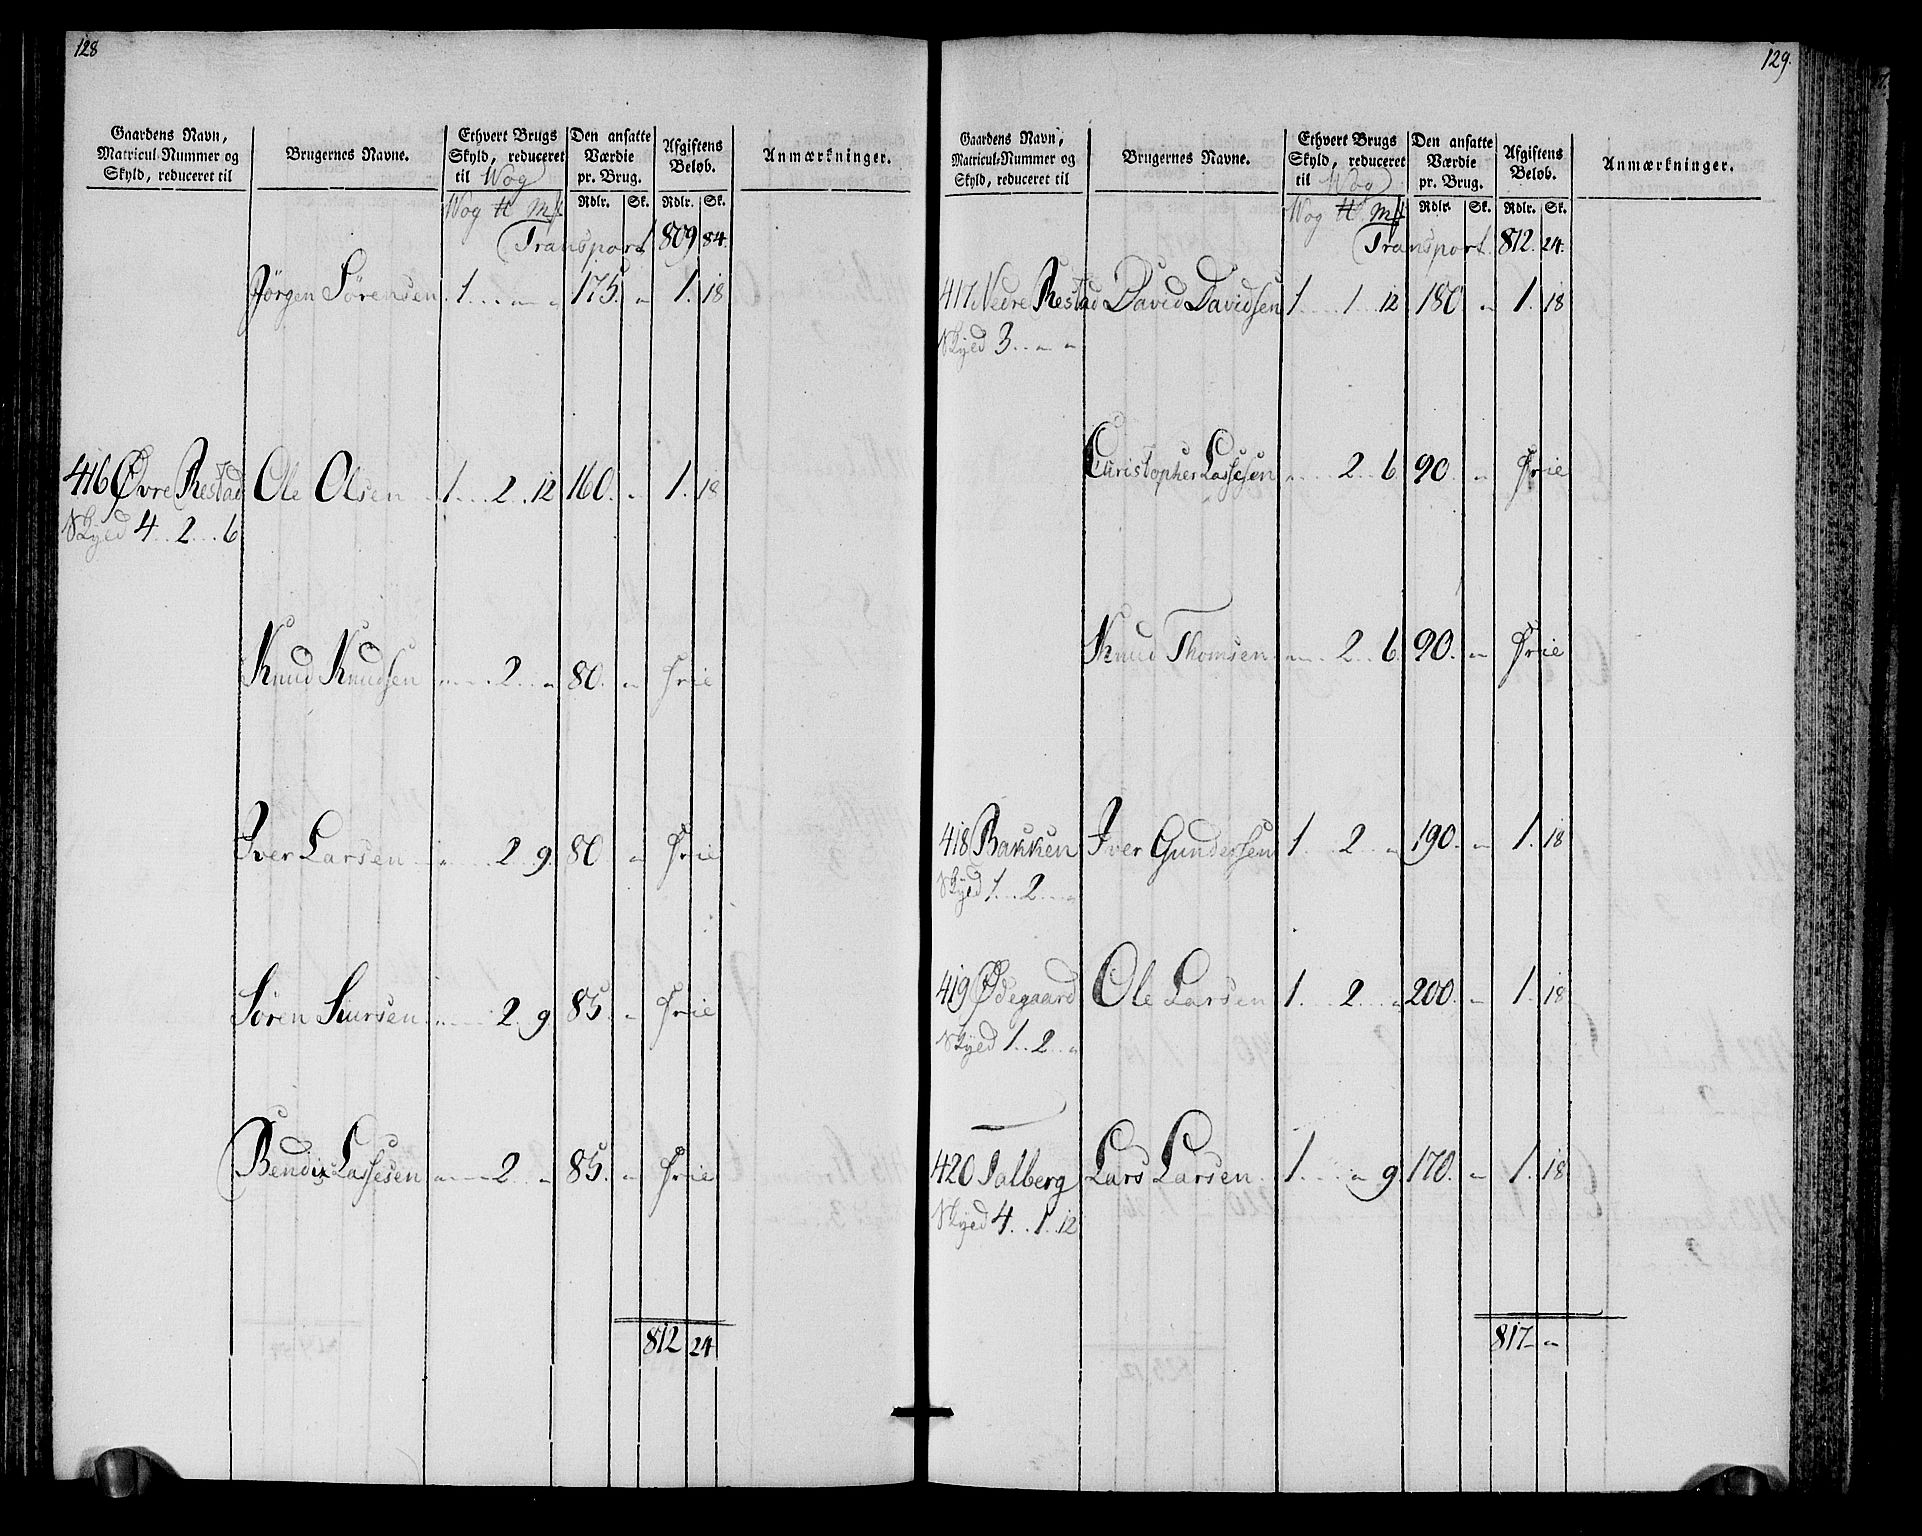 128
Gaardens Navn, Matricul-Nummer og Skyld, reduceret til | Brugernes Navne. | Ethvert Brugs Skyld, reduceret til Wog | Den ansatte Værdie pr. Brug. | Afgiftens Beløb. | Anmærkninger.
Wog ℔ Mk | Rdlr. | Sk. | Rdlr. | Sk.
Transport 809 84.
Jörgen Sörensen 1 . . „ „ 175. „ 1. 18
416 Øvre Restad Ole Olsen 1 . . 2. 12 160. „ 1. 18
Skyld 4 . . 2 . . 6
Knud Knudsen „ . . 2 . „ 80. „ Frie
Iver Larsen „ . . 2. 9. 80 „ Frie
Sören Siursen „ . . 2. 9 85. „ Frie
Bendix Lassesen „ . . 2 . „ 85. „ Frie
812 24
129.
Gaardens Navn, Matricul-Nummer og Skyld, reduceret til | Brugernes Navne. | Ethvert Brugs Skyld, reduceret til Wog | Den ansatte Værdie pr. Brug. | Afgiftens Beløb. | Anmærkninger.
Wog ℔ Mk | Rdlr. | Sk. | Rdlr. | Sk.
Transport. 812. 24.
417 Nedre Restad David Davidsen 1 . . 1 . 12 180 „ 1. 18
Skyld 3 . . „ „
Christopher Lassesen „ . . 2 . 6 90. „ Frie
Knud Thomsen „ . . 2 . 6. 90. „ Frie
418 Bakken Iver Gundersen 1 . . 2 . „ 190. „ 1. 18
Skyld 1 . . 2 . . „
419 Ødegaard Ole Larsen 1 . . 2 . „ 200. „ 1. 18
Skyld 1 . . 2 . . „
420 Dalberg Lars Larsen 1 . . „ 9. 170. „ 1. 18
Skyld 4 . . 1 . 12
817 „